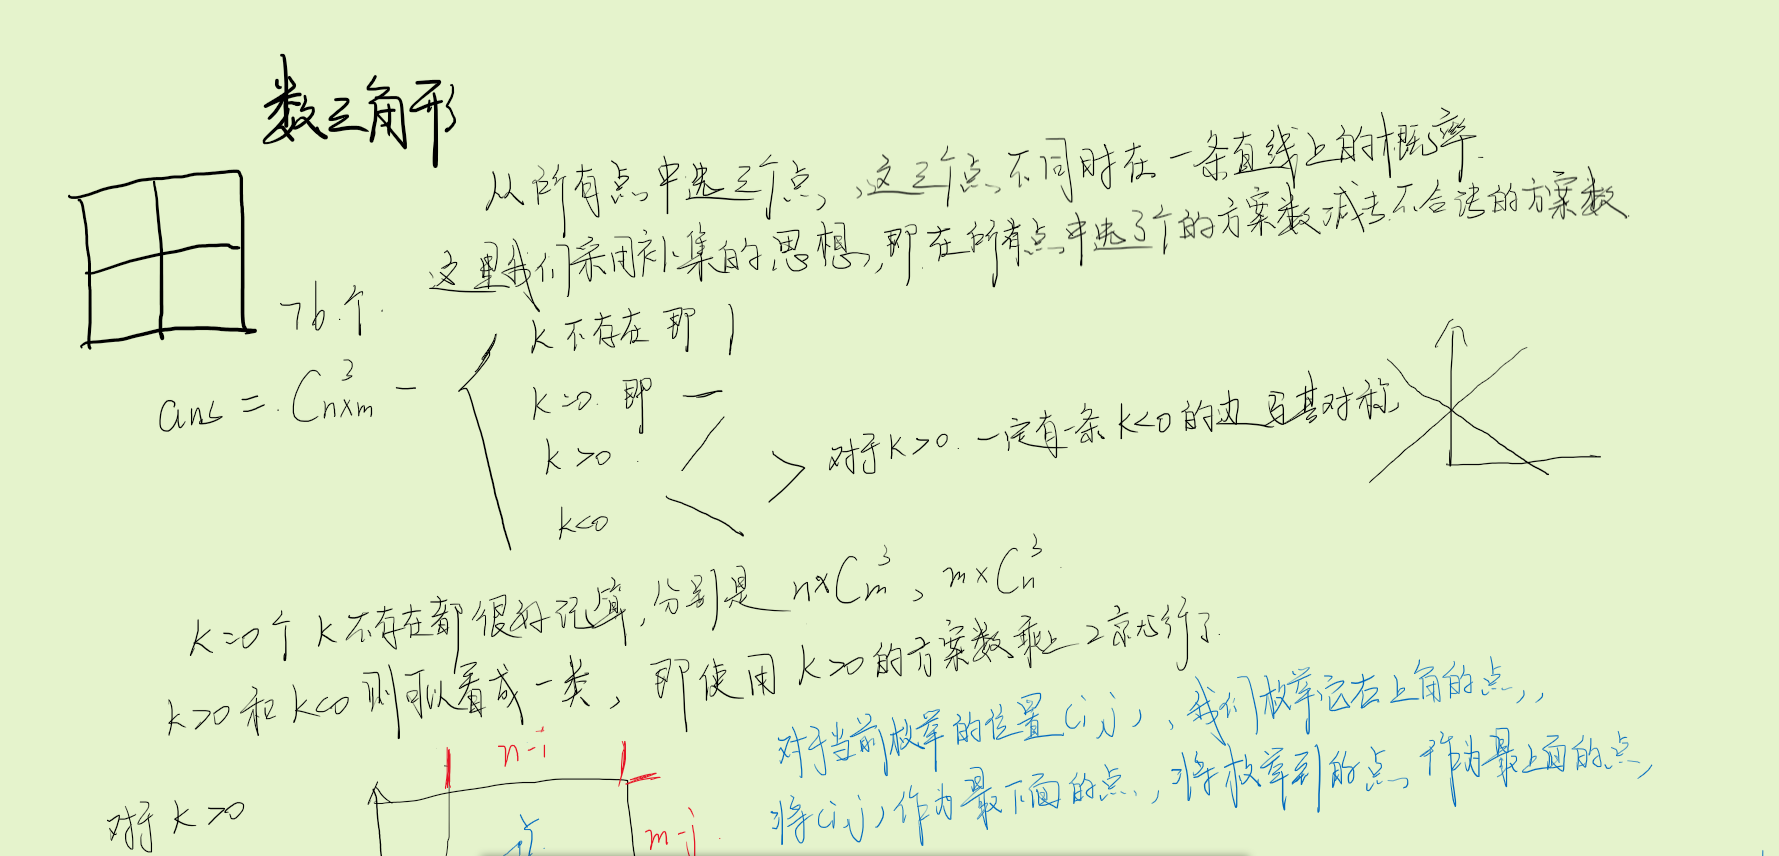 数三角形
从所有点中选三个点,这三个点不同时在一条直线上的概率.
这里我们采用补集的思想,即在所有点中选3个的方案数减去不合法的方案数
76个.
ans = C³n×m −
k不存在 即 |
k=0. 即 —
k>0. /
k<0 \
对于k>0. 一定有一条k<0的边与其对称
k=0个k不存在都很好记算,分别是 n×C³m、m×C³n.
k>0和k<0则可以看成一类,即使用k>0的方案数乘上2就行了.
对于k>0
n-i
m-j
对于当前枚举的位置(i,j),我们枚举它右上角的点,,
将(i,j)作为最下面的点,,将枚举到的点作为最上面的点,